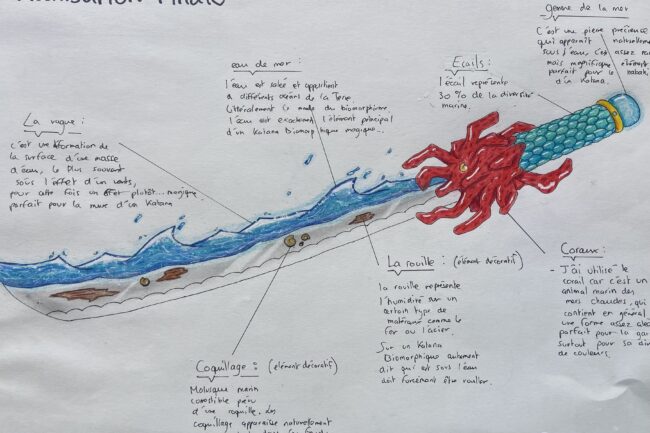 Finale
gemme de la mer
C'est une pierre précieuse
qui apparaît naturellement
sous l'eau, c'est assez rare
mais magnifique élément
parfait pour le
d'un katana.
eau de mer :
l'eau est salée et appartient
à différents océans de la Terre
littéralement le monde du biomorphisme
l'eau est exactement l'élément principal
d'un Katana Biomorphique magique...
Ecails :
l'écail représente
30 % de la diversité
marine.
La vague :
c'est une déformation de
la surface d'une masse
d'eau, le plus souvent
sous l'effet d'un vents,
pour cette fois un effet plutôt... magique
parfait pour la lame d'un Katana
La rouille : (élément décoratif)
la rouille représente
l'humidité sur un
certain type de
matérique comme le
fer ou l'acier.
Sur un Katana
Biomorphique autrement
dit qui est sous l'eau
doit forcément être rouiller.
Coraux :
- J'ai utilisé le
corail car c'est un
animal marin des
mers chaudes, qui
contient en général
une forme assez
parfait pour la
surtout pour sa
de couleurs.
Coquillage : (élément décoratif)
Molusque marin
comestible pré
d'une coquille. Les
coquillage apparaise naturellement